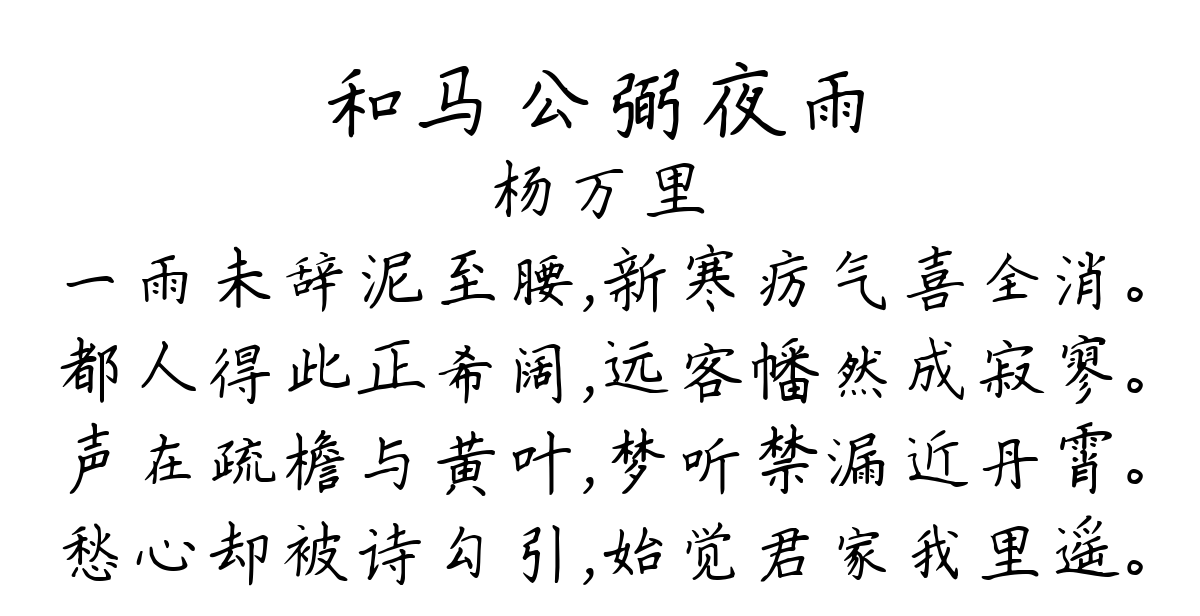 和马公弼夜雨
杨万里
一雨未辞泥至腰,新寒疠气喜全消。
都人得此正希阔,远客幡然成寂寥。
声在疏檐与黄叶,梦听禁漏近丹霄。
愁心却被诗勾引,始觉君家我里遥。